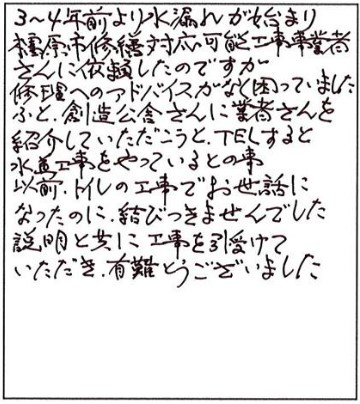 3～4年前より水漏れが始まり
橿原市修繕対応可能工事事業者
さんに依頼したのですが
修理へのアドバイスがなく困っていました
ふと、創造公舎さんに業者さんを
紹介していただこうと、TELすると
水道工事をやっているとの事
以前、トイレの工事でお世話に
なったのに、結びつきませんでした
説明と共に工事を引受けて
いただき、有難とうございました